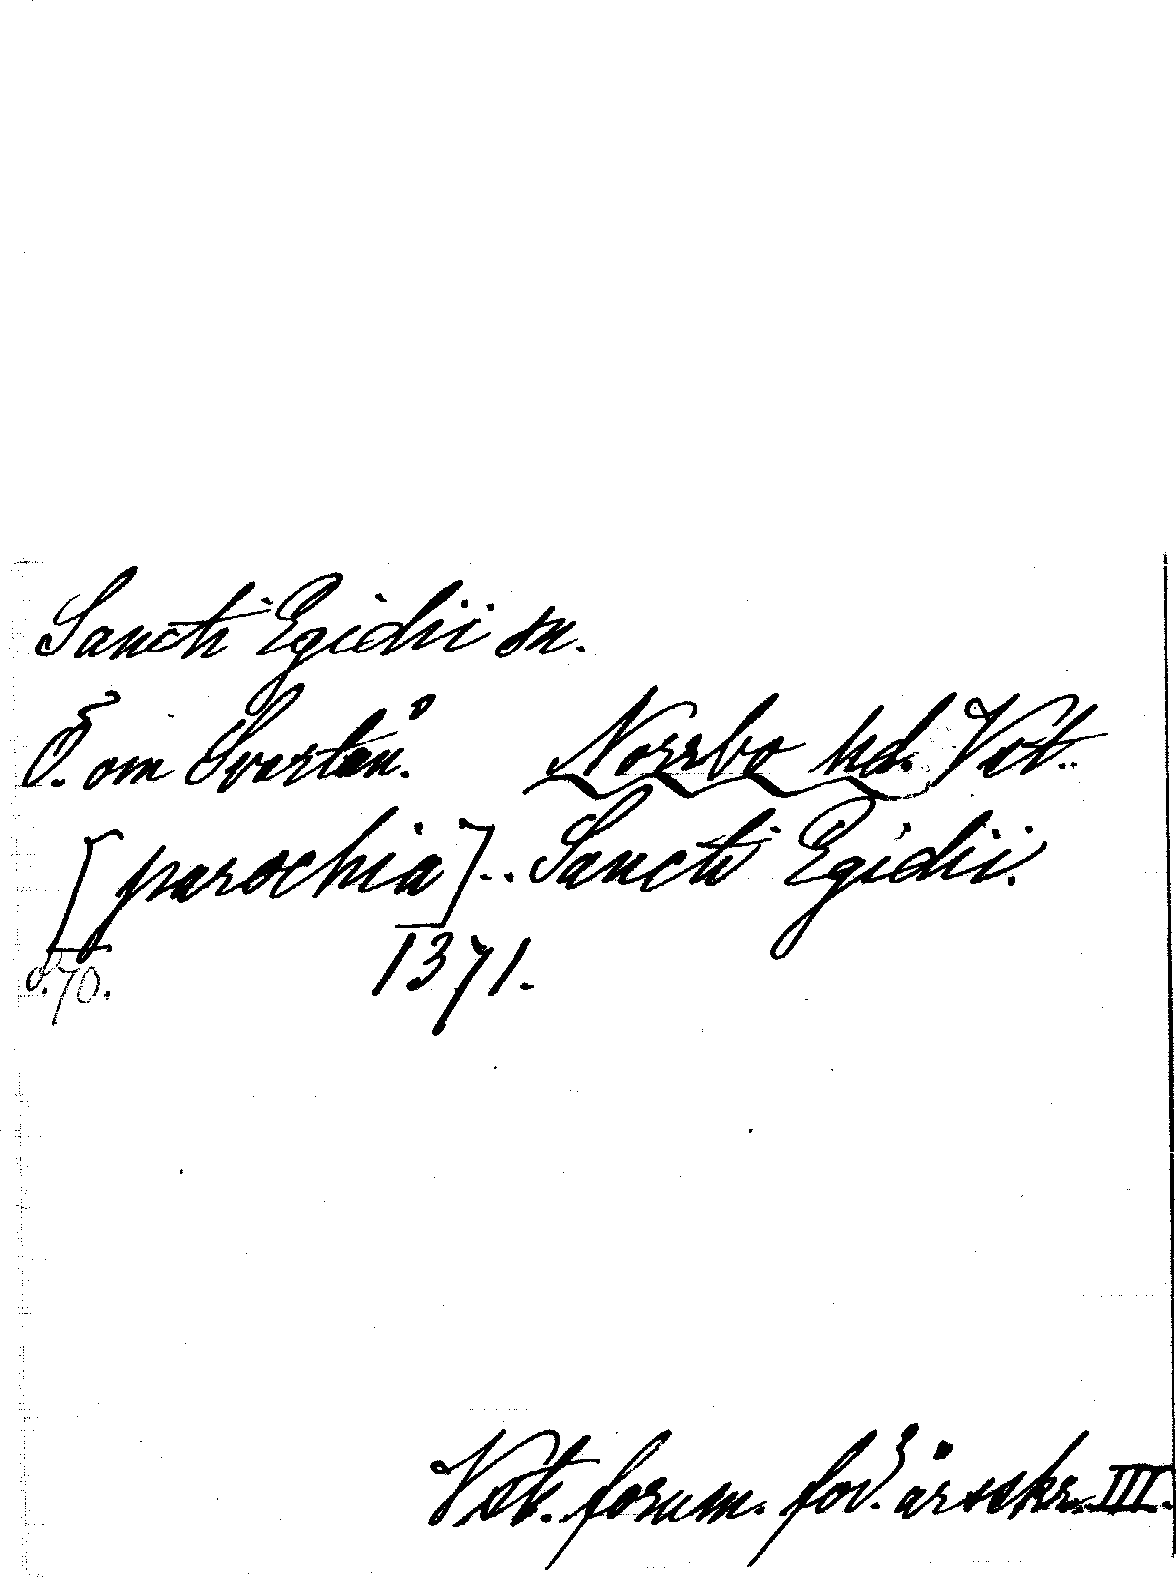 Sancti Egidii sn.
Ö. om Svartån. Norrbo hd. Vst.
[parochia]... Sancti Egidii.
s. 70. 1371.
Vstm. fornm. för. årsskr. III.